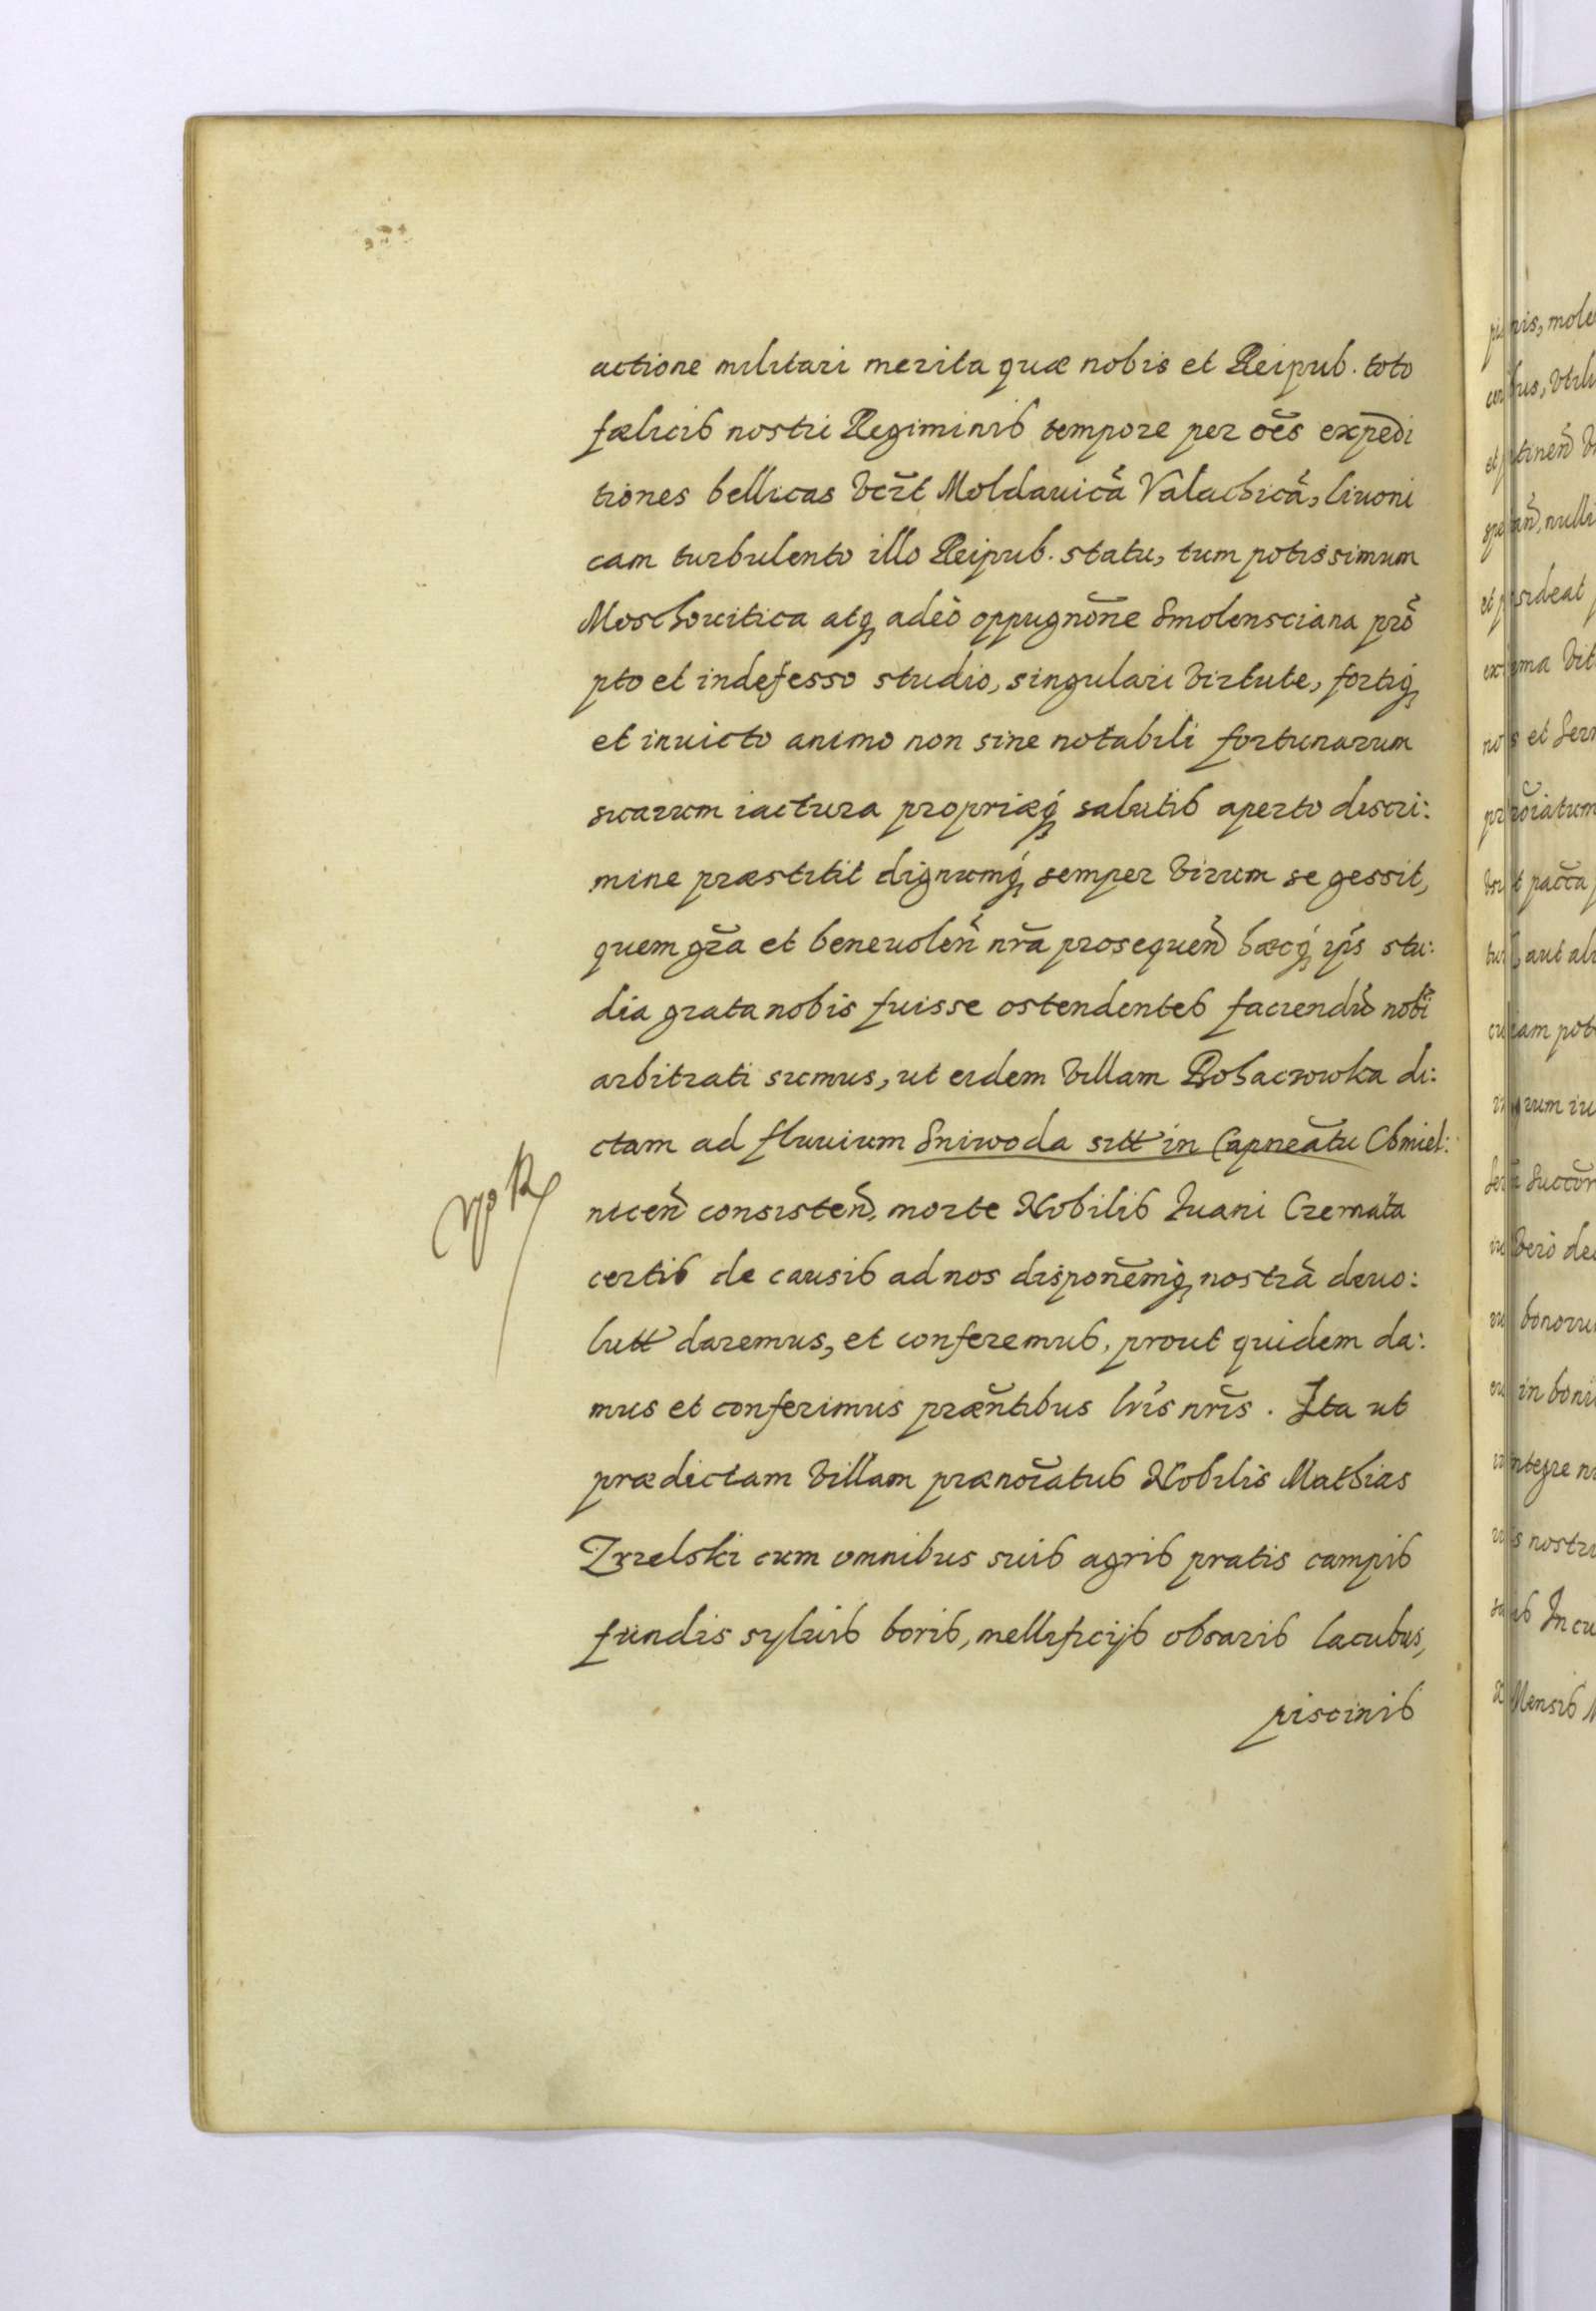 actione militari merita quæ nobis et Reipub. toto
fœlicis nostri Regiminis tempore per oẽs expedi
tiones bellicas vĩzt Moldauicã Valachicã, liuoni
cam turbulento illo Reipub. statu, tum potissimum
Moschouitica atq̢ adeò oppugnõne Smolensciana prõ
pto et indefesso studio, singulari virtute, fortiq̢
et inuicto animo non sine notabili fortunarum
suarum iactura propriæq̢ salutis aperto discri:
mine præstitit dignumq̢ semper virum se gessit,
quem grã et beneuoleñ nrã prosequeñ hæcq̢ ipĩs stu:
dia grata nobis fuisse ostendentes faciendũ nobĩ
arbitrati sumus, ut eidem villam Rohaczowka di:
ctam ad fluuium Sniwoda sitt in Capneãtu Chmiel:
niceñ consisteñ, morte Nobilis Iuani Czemata
certis de causis ad nos disponẽmq̢ nostrã deuo:
lutt daremus, et conferemus, prout quidem da:
mus et conferimus præñtibus lrĩs nrĩs. Ita ut
prædictam villam prænoĩatus Nobilis Mathias
Zrzelski cum omnibus suis agris pratis campis
fundis syluis boris, mellificijs oboraris lacubus,
piscinis